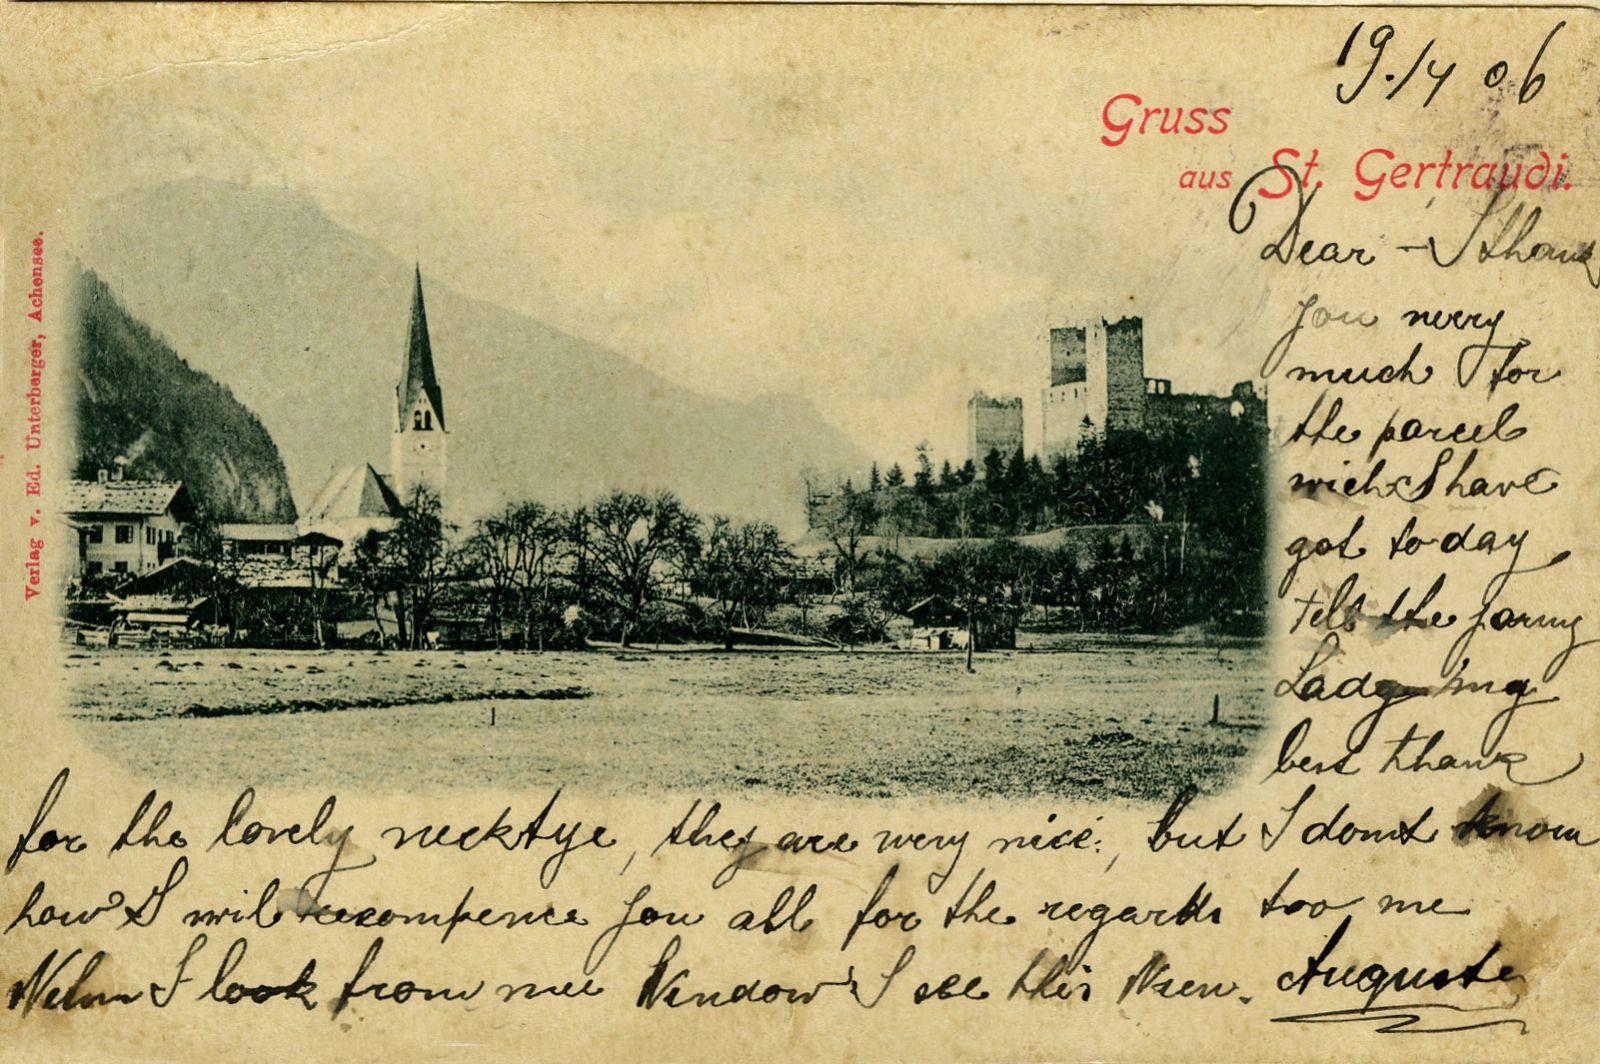 19./4 06
Gruss
aus St. Gertraudi.
Verlag v. Ed. Unterberger, Achensee.
Dear – I thank
you werry
much for
the parcel
wich I have
got to day
tell the young
Lady my
best thank
for the lovely necktye, they are werry nice, but I dont know
how I wil recompence you all for the regards too me
I look from mee Window I see this Wiew. Auguste